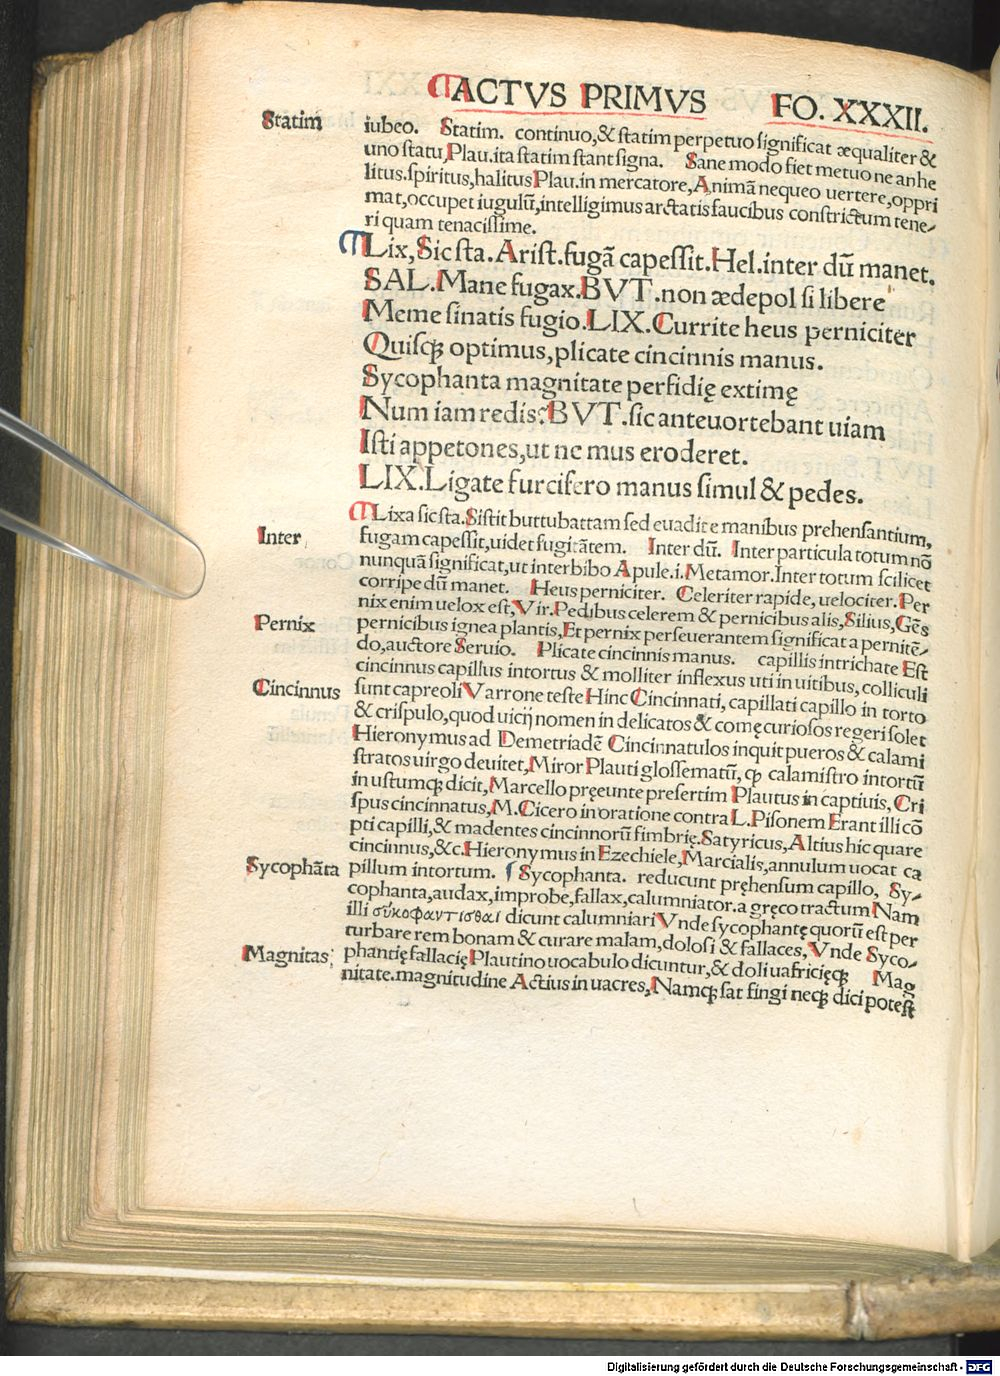 ACTVS PRIMVS FO. XXXII.
Statim iubeo. Statim. continuo,& statim perpetuo significat æqualiter &
uno statu, Plau. ita statim stant signa. Sane modo fiet metuo ne anhe
litus. spiritus, halitus Plau. in mercatore, Animã nequeo uertere, oppri
mat, occupet iugulũ, intelligimus arctatis faucibus constrictum tene⸗
ri quam tenacissime.
Lix, Sic sta. Arist. fugã capessit. Hel. inter dũ manet.
SAL. Mane fugax. BVT. non ædepol si libere
Meme sinatis fugio. LIX. Currite heus perniciter
Quisqȝ optimus, plicate cincinnis manus.
Sycophanta magnitate perfidię extimę
Num iam redis? BVT. sic anteuortebant uiam
Isti appetones, ut ne mus eroderet.
LIX. Ligate furcifero manus simul & pedes.
Lixa sic sta. Sistit buttubattam sed euadit e manibus prehensantium,
Inter fugam capessit, uidet fugitãtem. Inter dũ. Inter particula totum nõ
nunquã significat, ut inter bibo Apule. i. Metamor. Inter totum scilicet
corripe dũ manet. Heus perniciter. Celeriter rapide, uelociter. Per
nix enim uelox est, Vir. Pedibus celerem & pernicibus alis, Silius, Gẽs
Pernix pernicibus ignea plantis, Et pernix perseuerantem significat a pernitẽ⸗
do, auctore Seruio. Plicate cincinnis manus. capillis intrichate Est
cincinnus capillus intortus & molliter inflexus uti in uitibus, colliculi
Cincinnus sunt capreoli Varrone teste Hinc Cincinnati, capillati capillo in torto
& crispulo, quod uicij nomen in delicatos & comę curiosos regeri solet
Hieronymus ad Demetriadẽ Cincinnatulos inquit pueros & calami
stratos uirgo deuitet, Miror Plauti glossematũ, ꝙ calamistro intortũ
in ustumqȝ dicit, Marcello pręeunte presertim Plautus in captiuis, Cri
spus cincinnatus, M. Cicero in oratione contra L. Pisonem Erant illi cõ
pti capilli, & madentes cincinnorũ fimbrię. Satyricus, Altius hic quare
cincinnus, &c. Hieronymus in Ezechiele, Marcialis, annulum uocat ca
Sycophãta pillum intortum. Sycophanta. reducunt pręhensum capillo, Sy⸗
cophanta, audax, improbe, fallax, calumniator. a gręco tractum Nam
illi σύκοφαντισθαι dicunt calumniari Vnde sycophantę quorũ est per
turbare rem bonam & curare malam, dolosi & fallaces, Vnde Syco⸗
Magnitas; phantię fallacię Plautino uocabulo dicuntur, & doli uafricięqȝ Mag
nitate. magnitudine Actius in uacres, Namqȝ sat fingi neqȝ dici potest
Digitalisierung gefördert durch die Deutsche Forschungsgemeinschaft - DFG